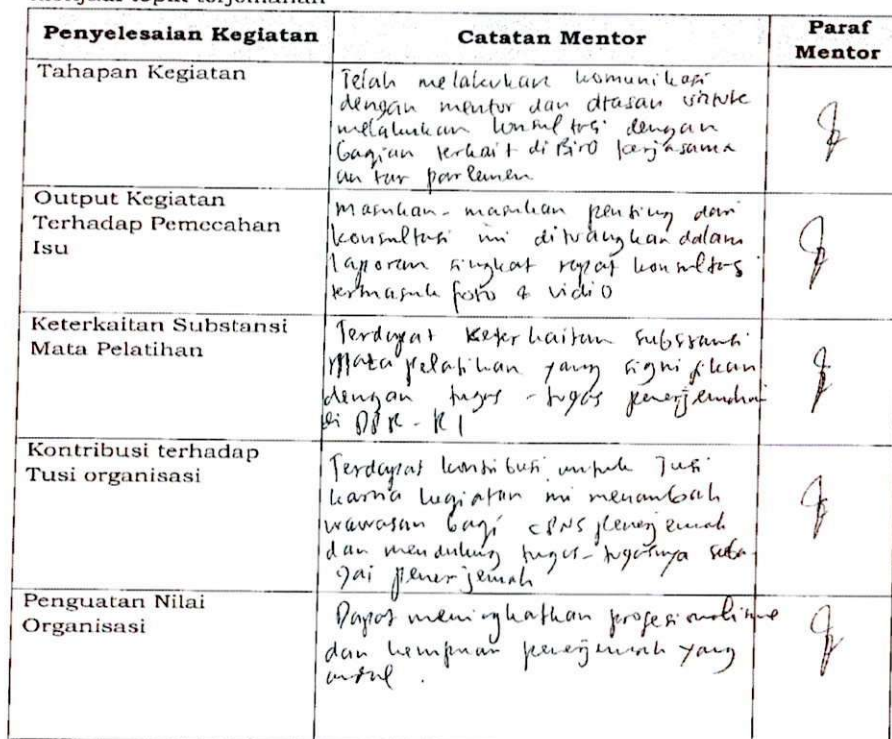 Penyelesaian Kegiatan
Catatan Mentor
Paraf
Mentor
Tahapan Kegiatan
Telah melakukan komunikasi
dengan mentor dan atasan untuk
melakukan konsultasi dengan
bagian terkait di Biro kerjasama
antar parlemen
Output Kegiatan
Terhadap Pemecahan
Isu
Masukan-masukan penting dari
konsultasi ini dituangkan dalam
laporan singkat rapat konsultasi
termasuk foto & vidio
Keterkaitan Substansi
Mata Pelatihan
Terdapat Keterkaitan substansi
Mata pelatihan yang signifikan
dengan tugas-tugas penerjemahan
di DPR-RI
Kontribusi terhadap
Tusi organisasi
Terdapat kontribusi untuk Tusi
karna kegiatan ini menambah
wawasan bagi CPNS penerjemah
dan mendukung tugas-tugasnya seba-
gai penerjemah
Penguatan Nilai
Organisasi
Dapat meningkatkan
dan penerjemah yang